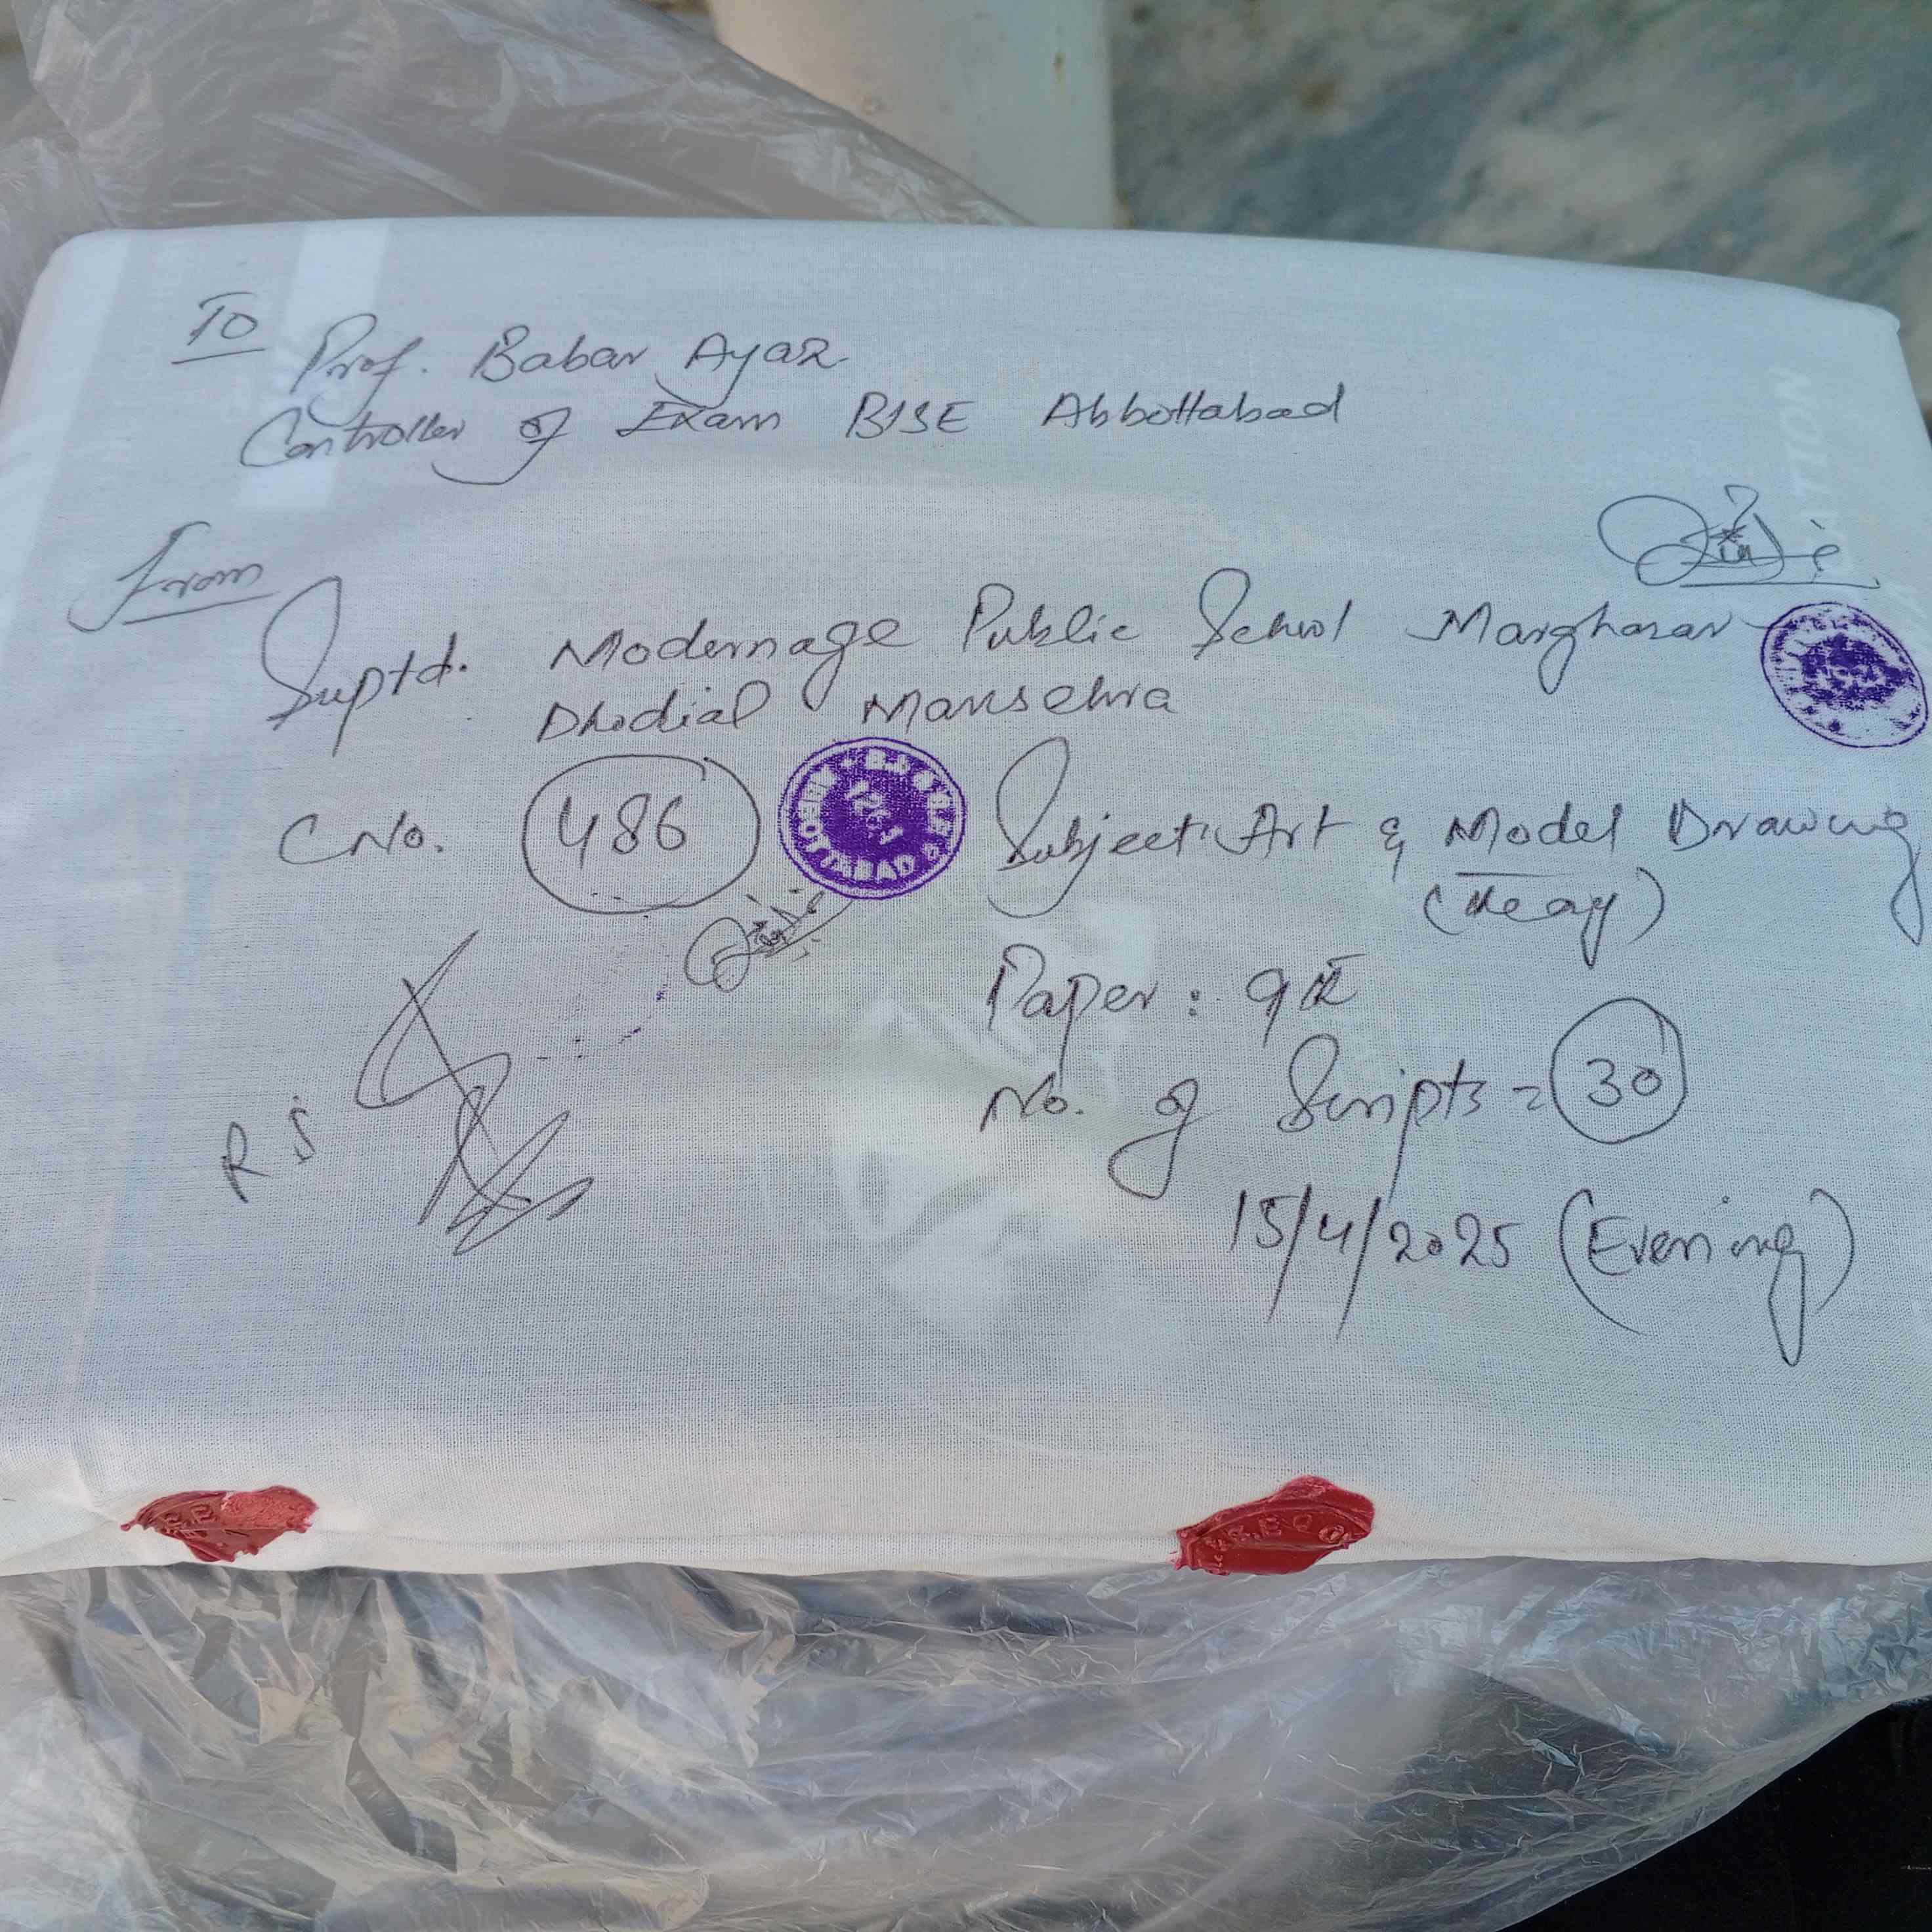 To
Prof. Babar Ayaz
Controller of Exam BISE Abbottabad
From
Suptd. Modernage Public School Marghazar
Dhodial Mansehra
C No. 486
Subject: Art & Model Drawing
Paper: 9th
No. of Scripts = 30
15/4/2025 (Evening)
RS
ABBOTTABAD